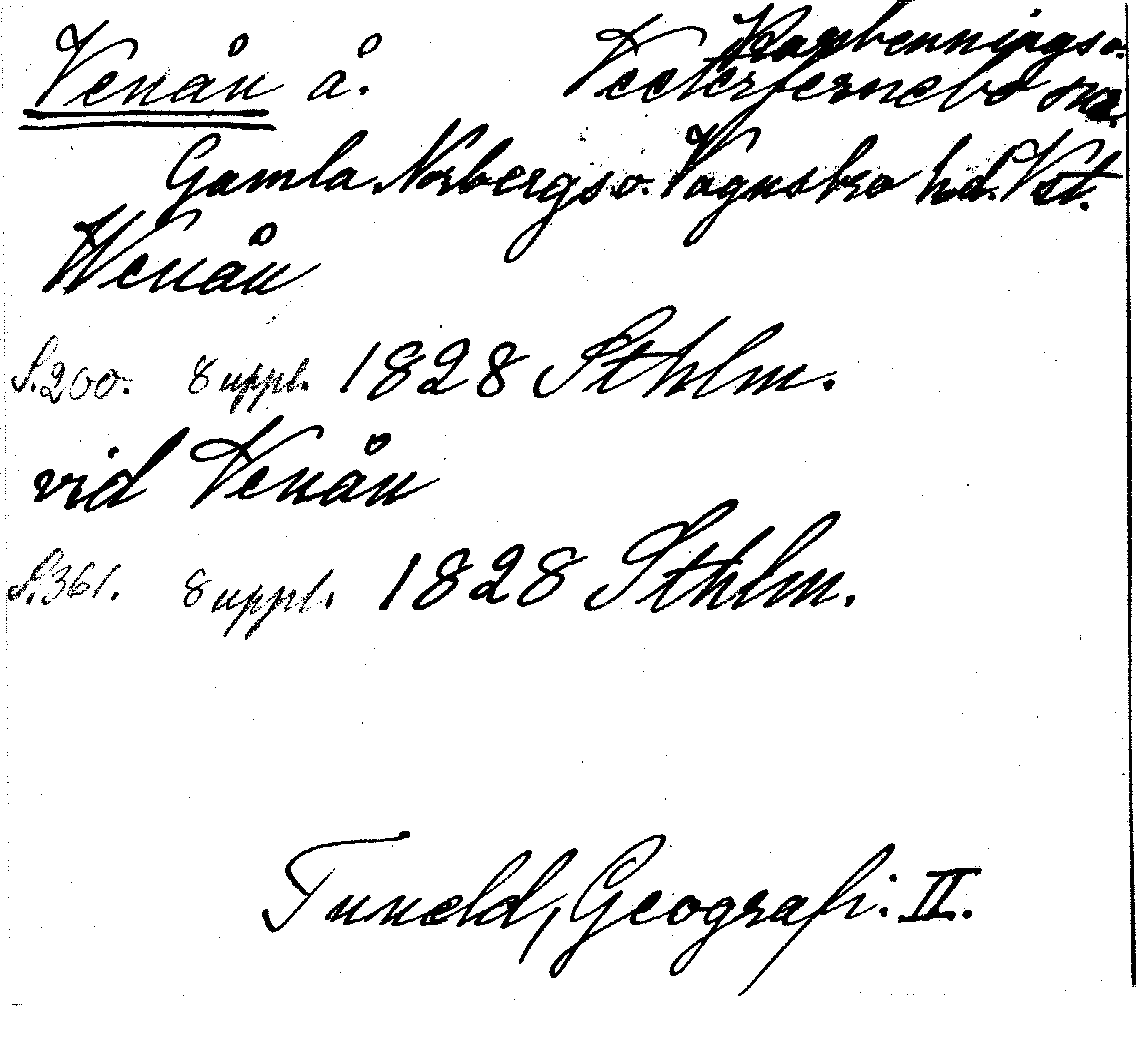 Venån å. Karbenningso.
Vesterfernebo sna.
Gamla Norbergs o. Vagnsbro hd. Vst.
Wenån
S. 200. 8 uppl. 1828 Sthlm.
vid Venån
S. 361. 8 uppl. 1828 Sthlm.
Tuneld, Geografi. II.